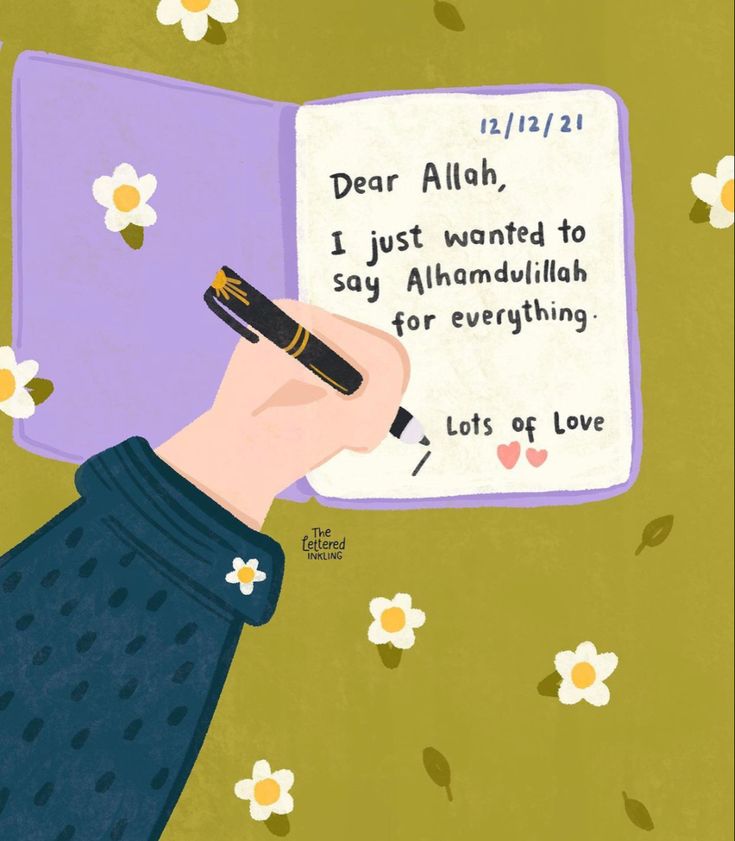 12/12/21
Dear Allah,
I just wanted to
say Alhamdulillah
for everything.
Lots of Love
The
Lettered
INKLING